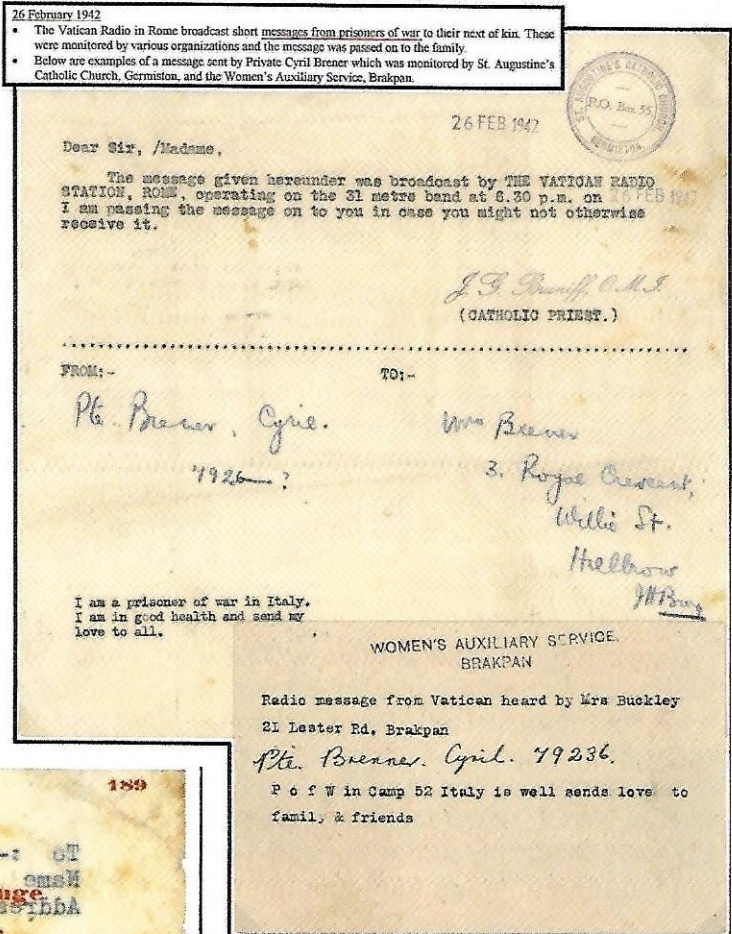 26 February 1942
• The Vatican Radio in Rome broadcast short messages from prisoners of war to their next of kin. These
were monitored by various organizations and the message was passed on to the family.
• Below are examples of a message sent by Private Cyril Brener which was monitored by St. Augustine's
Catholic Church, Germiston, and the Women's Auxiliary Service, Brakpan.
ST. AUGUSTINE'S CATHOLIC CHURCH
P.O. Box 55
GERMISTON
26 FEB 1942
Dear Sir, /Madame,
The message given hereunder was broadcast by THE VATICAN RADIO
STATION, ROME, operating on the 31 metre band at 6.30 p.m. on 26 FEB 1942
I am passing the message on to you in case you might not otherwise
receive it.
J. G. Braniff, O.M.I.
(CATHOLIC PRIEST.)
FROM:- TO:-
Pte. Brener, Cyril. Mrs Brener
7926—? 3. Royal Crescent,
Willie St.
Hillbrow
JHBurg
I am a prisoner of war in Italy.
I am in good health and send my
love to all.
WOMEN'S AUXILIARY SERVICE,
BRAKPAN
Radio message from Vatican heard by Mrs Buckley
21 Lester Rd, Brakpan
Pte. Brenner. Cyril. 79236.
P o f W in Camp 52 Italy is well sends love to
family & friends
189
To :-
Name
Address